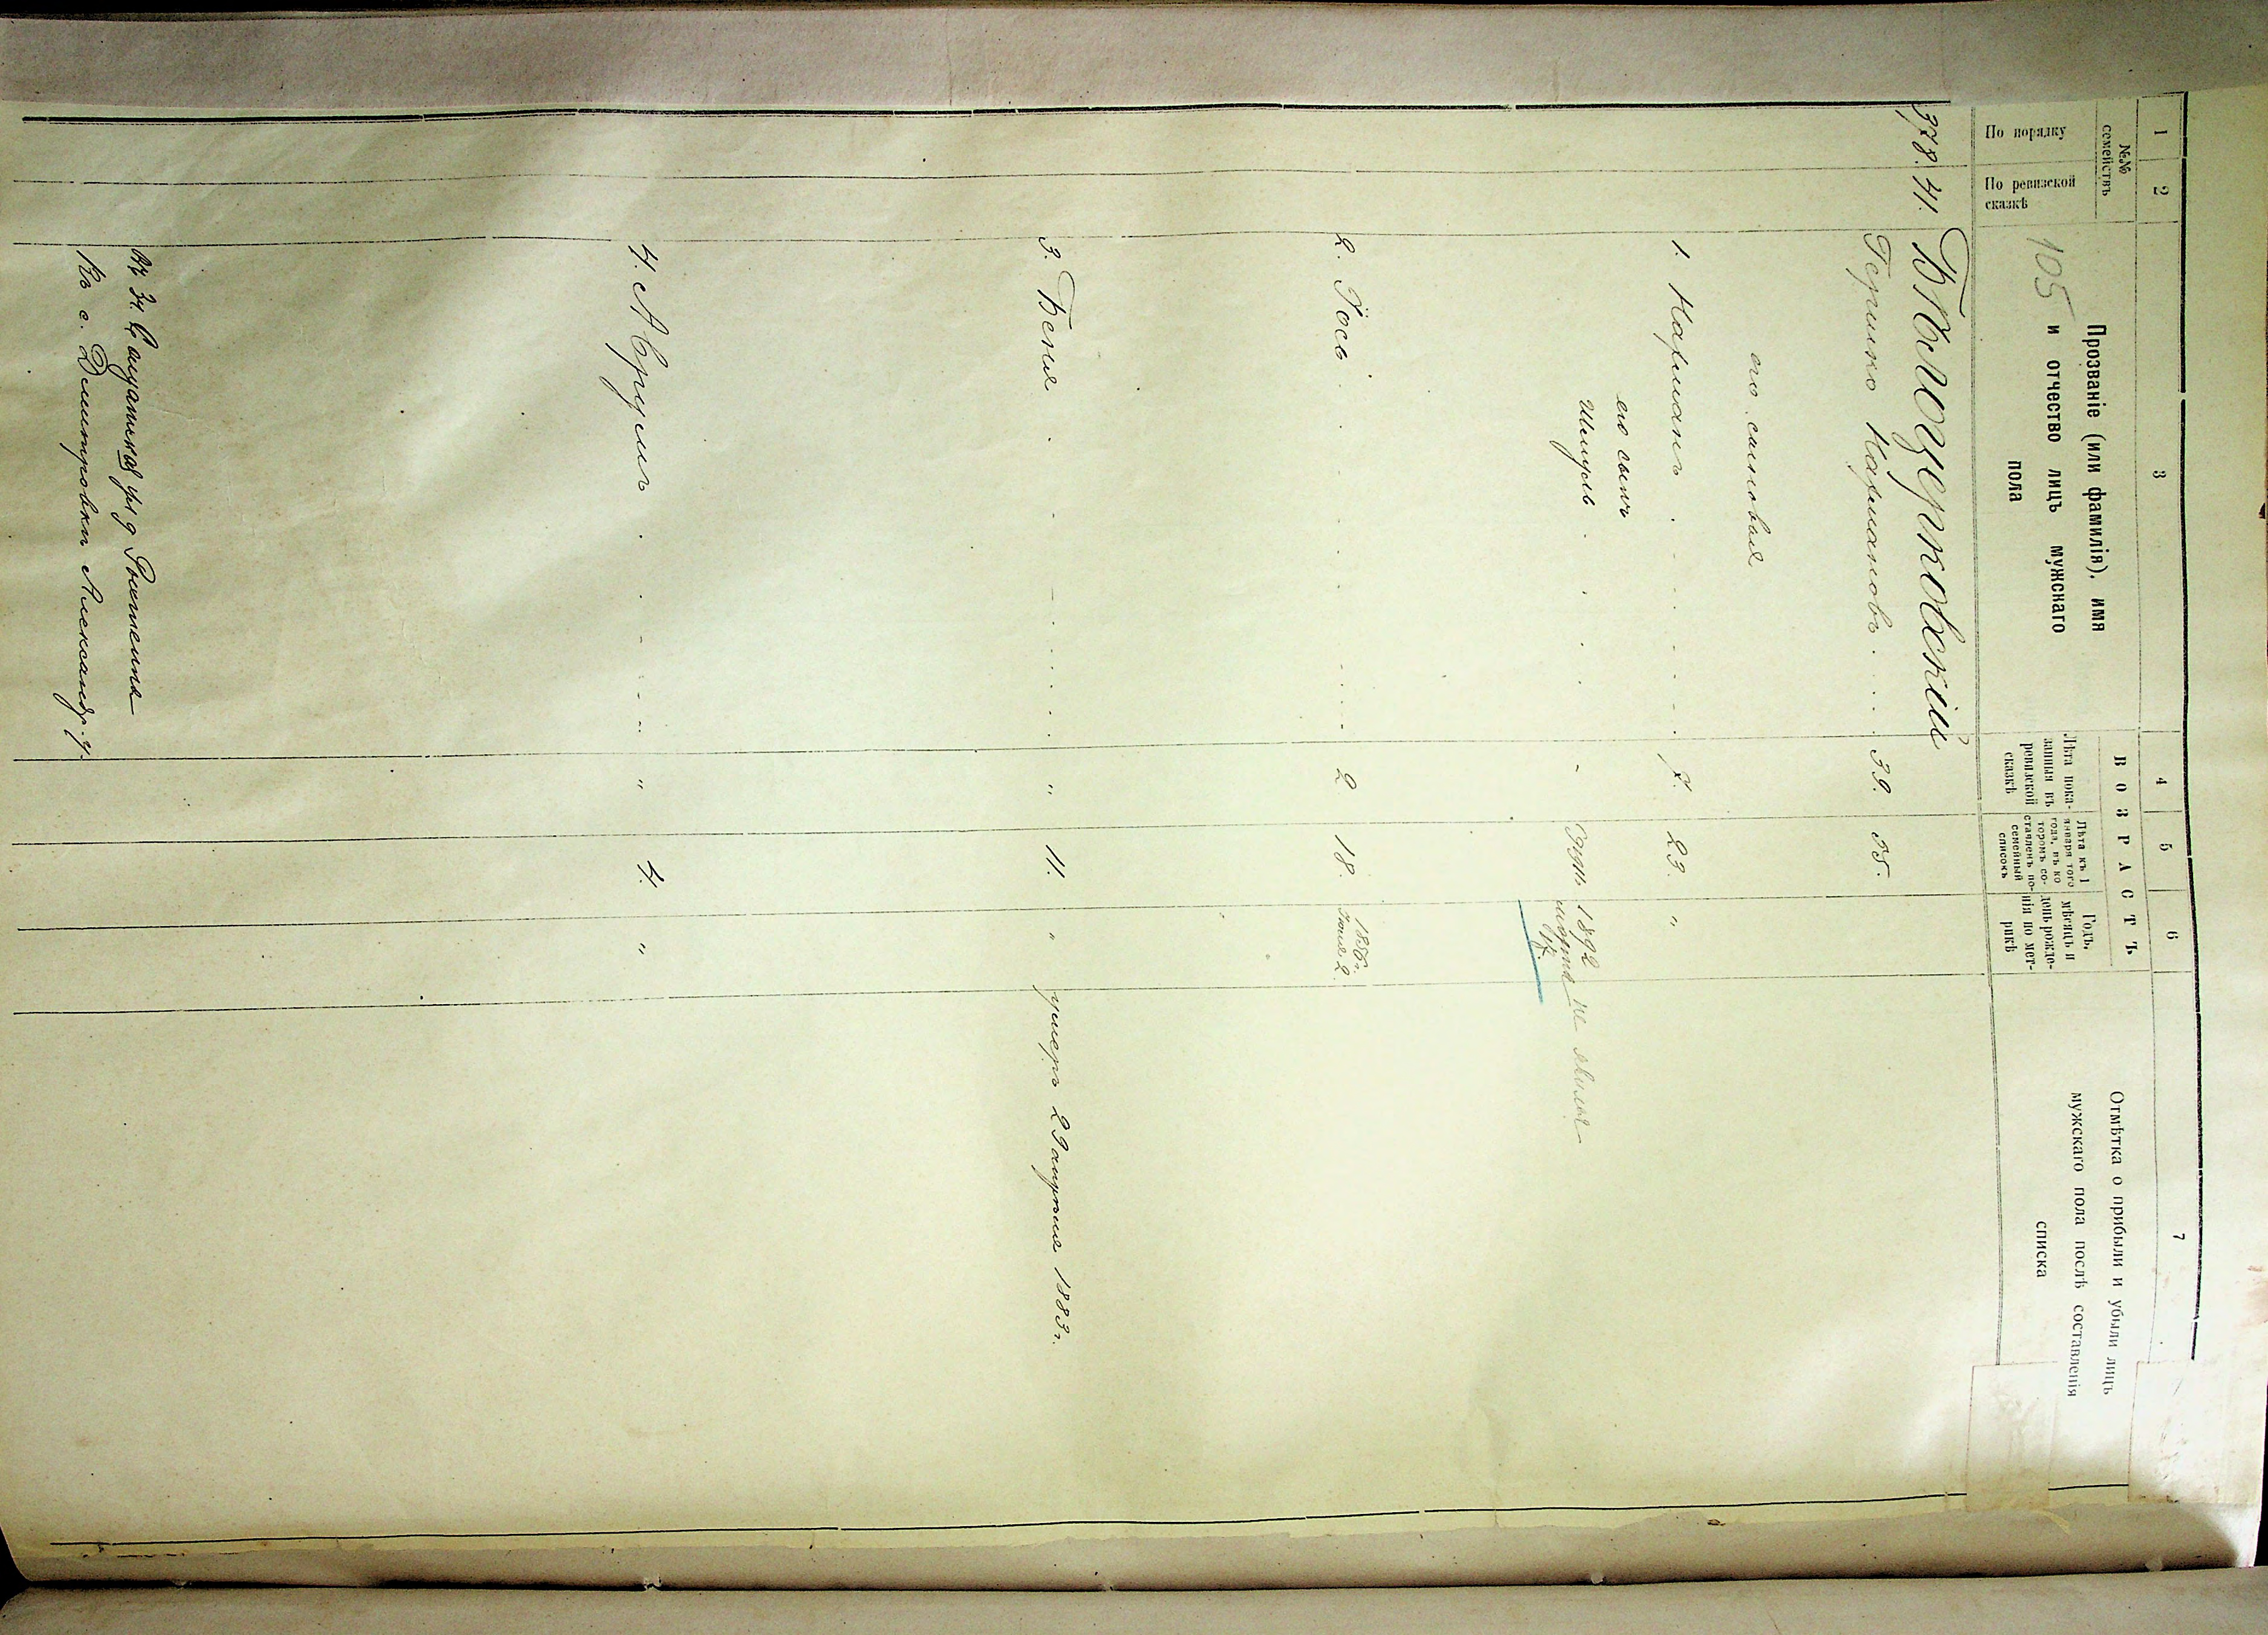 1 2 3 4 5 6 7
№№ семействъ
По порядку
По ревизской сказкѣ
Прозваніе (или фамилія), имя
и отчество лицъ мужскаго
пола
105
ВОЗРАСТЪ
Лѣта пока-
занныя въ
ревизской
сказкѣ
Лѣта къ 1
января того
года, въ ко-
торомъ со-
ставленъ по-
семейный
списокъ
Годъ,
мѣсяцъ и
день рожде-
нія по мет-
рикѣ
Отмѣтка о прибыли и убыли лицъ
мужскаго пола послѣ составленія
списка
378. 41. Бѣлоцерковскій
Гершко Кармановъ 39. 55.
его сыновья
1. Карманъ 7. 23. "
его сынъ
Шмуль 1892 марта 17. не явился
2. Іось 2 18. 1856 г. Іюля 2.
3. Беня " 11. " умеръ 29 апрѣля 1883 г.
4. Аврумъ " 4. "
34
Въ с. Дмитровки Александр. у.